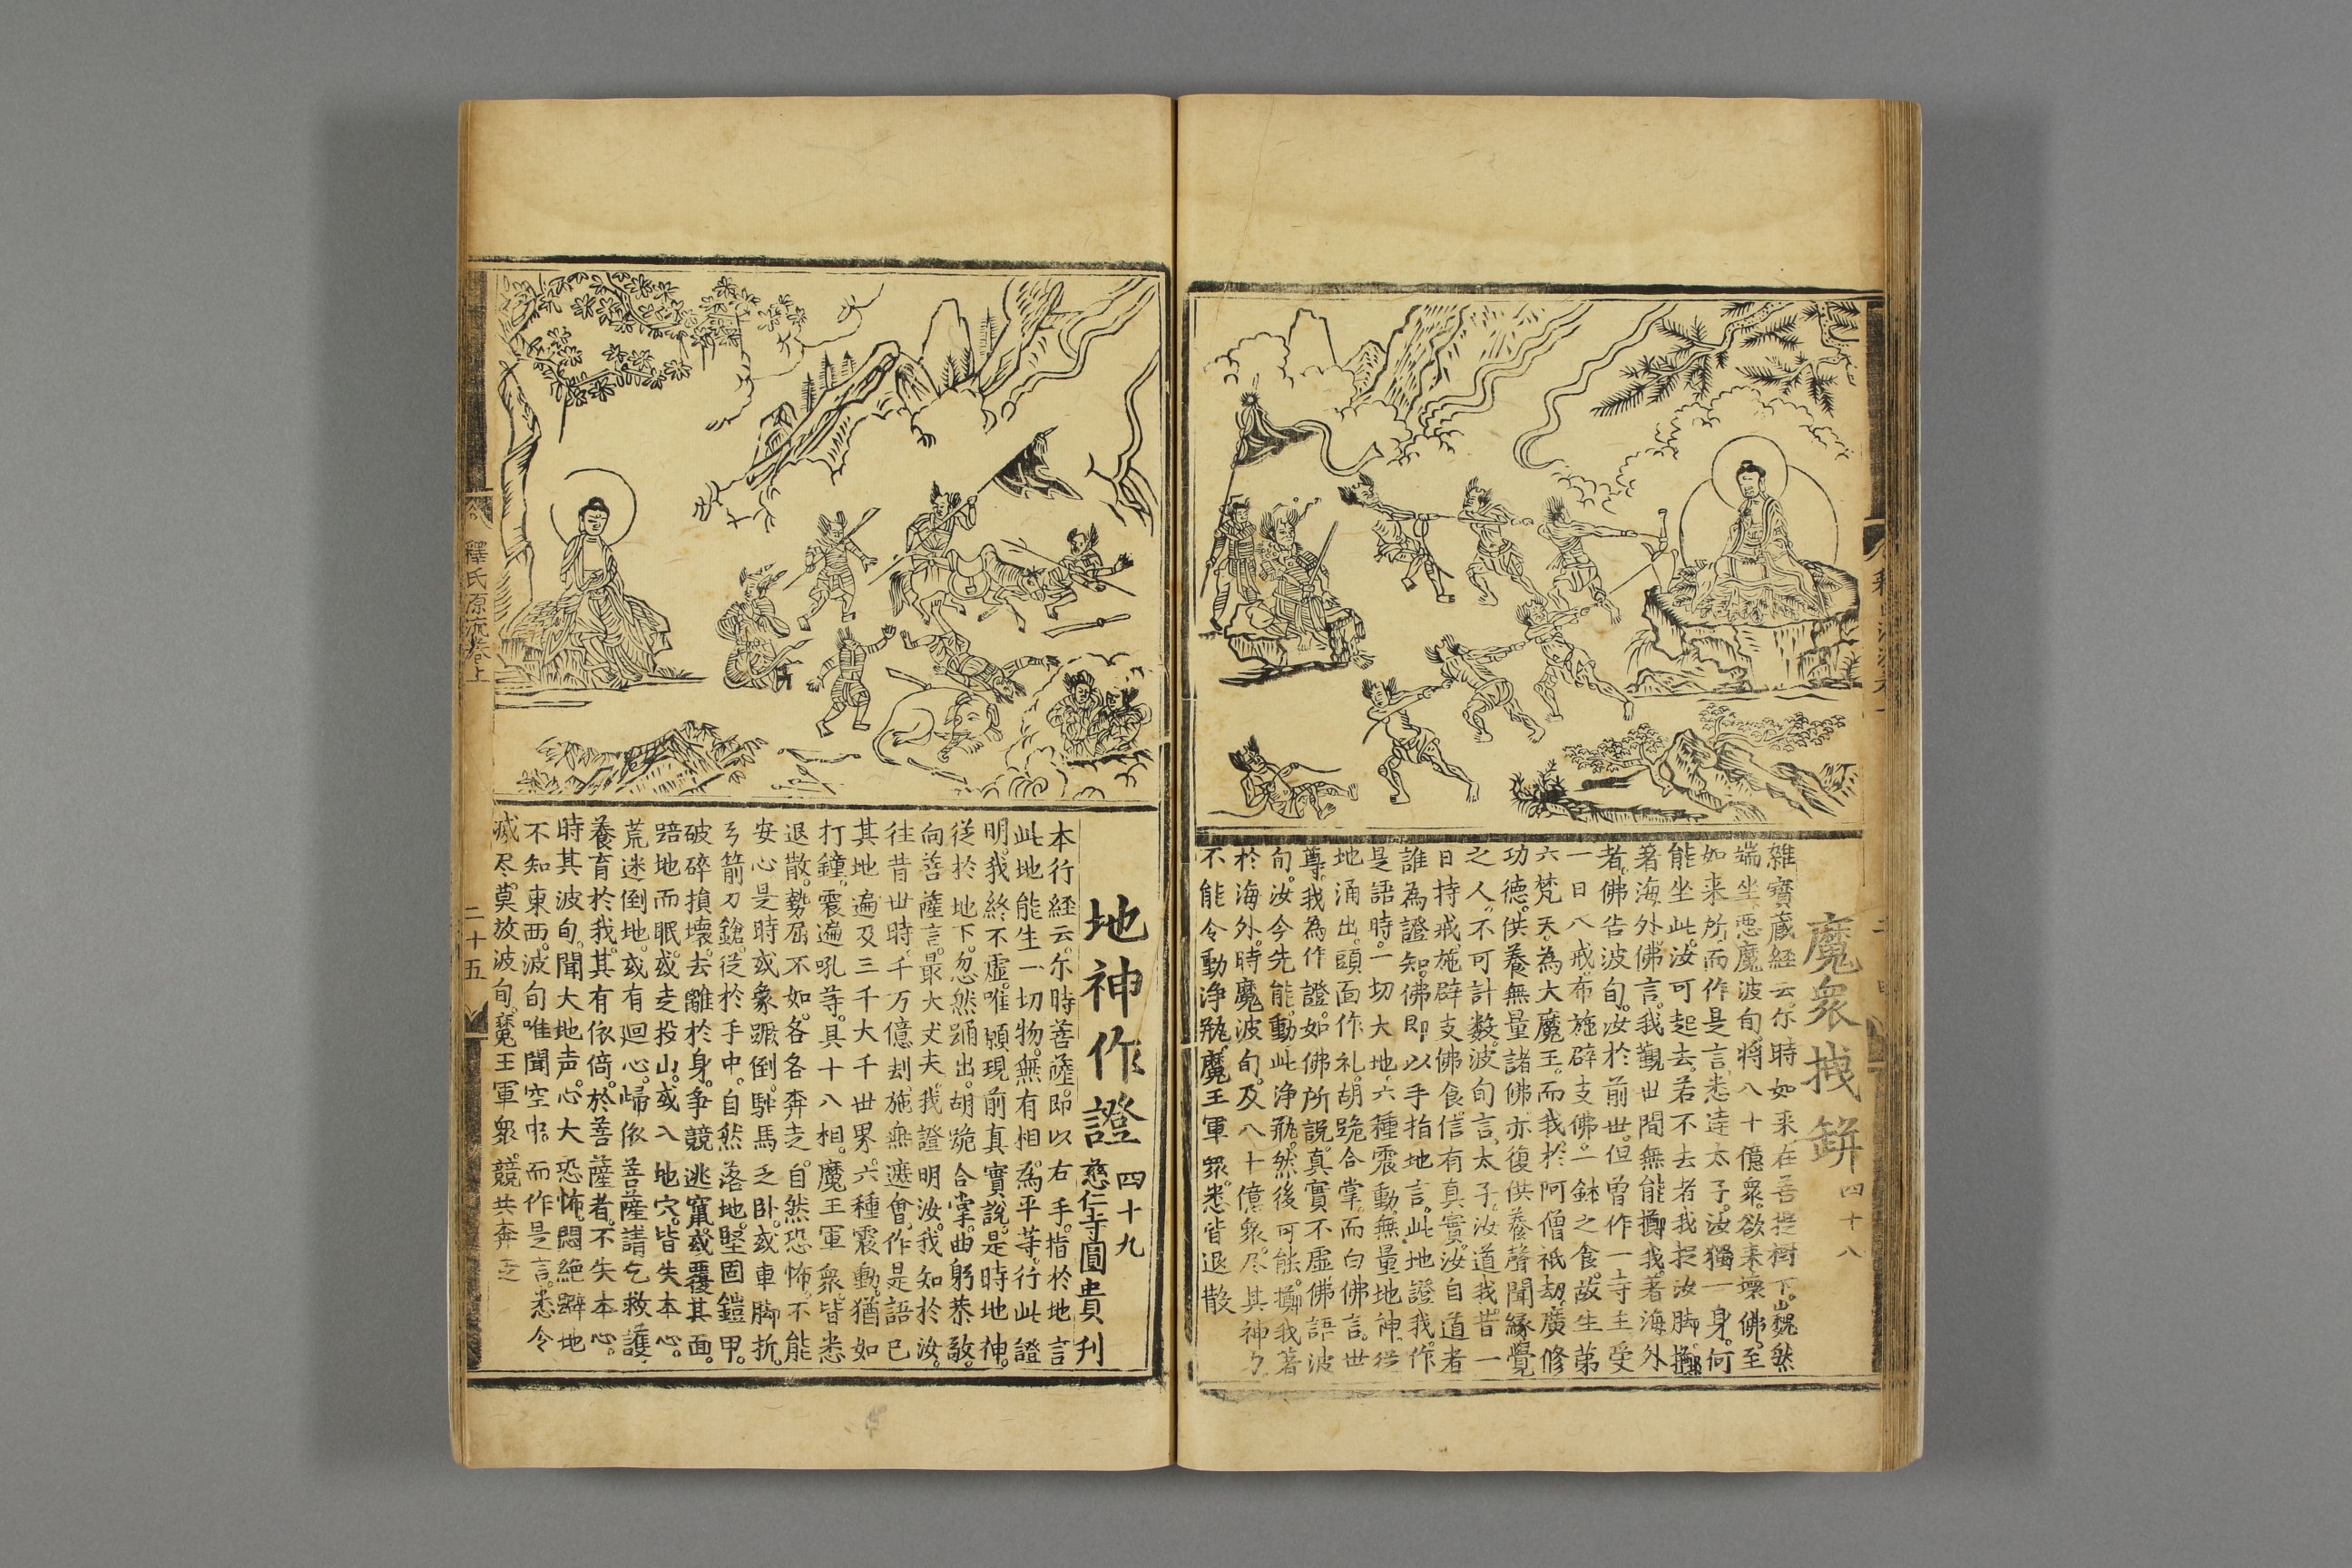 魔衆拽鉼 四十八
雜寶蔵経云尓時如来在菩提樹下巍然
端坐悪魔波旬將八十億衆欲来壞佛至
如来所而作是言悉達太子汝獨一身何
能坐此汝可起去若不去者我捉汝脚擲
著海外佛言我觀世間無能擲我著海外
者佛告波旬汝於前世但曽作一寺主受
一日八戒布施辟支佛一鉢之食故生第
六梵天為大魔王而我於阿僧祇劫廣修
功德供養無量諸佛亦復供養聲聞縁覺
之人不可計数波旬言太子汝道我昔一
日持戒施辟支佛食信有真實汝自道者
誰為證知佛即以手指地言此地證我作
是語時一切大地六種震動無量地神從
地涌出頭面作礼胡跪合掌而白佛言世
尊我為作證如佛所説真實不虚佛語波
旬汝今先能動此浄瓶然後可能擲我著
於海外時魔波旬及八十億衆尽其神力
不能令動浄瓶魔王軍衆悉皆退散
地神作證 四十九
慈仁寺圓貴刋
本行経云尓時菩薩即以右手指於地言
此地能生一切物無有相為平等行此證
明我終不虚唯願現前真實說是時地神
從於地下忽然踊出胡跪合掌曲躬恭敬
向菩薩言最大丈夫我證明汝我知於汝
徃昔世時千万億刦施無遮會作是語已
其地遍及三千大千世界六種震動猶如
打鐘震遍吼等具十八相魔王軍衆皆悉
退散勢屈不如各各奔走自然恐怖不能
安心是時或象蹶倒駈馬乏卧或車脚折
弓箭刀鎗從於手中自然落地堅固鎧甲
破碎損壞去離於身争競逃竄或覆其面
踣地而眠或走投山或入地穴皆失本心
荒迷倒地或有廻心歸依菩薩請乞救護
養育於我其有依倚於菩薩者不失本心
時其波旬聞大地声心大恐怖悶絶躃地
不知東西波旬唯聞空中而作是言悉令
滅尽莫放波旬魔王軍衆競共奔走
釋氏源流卷上
二十五